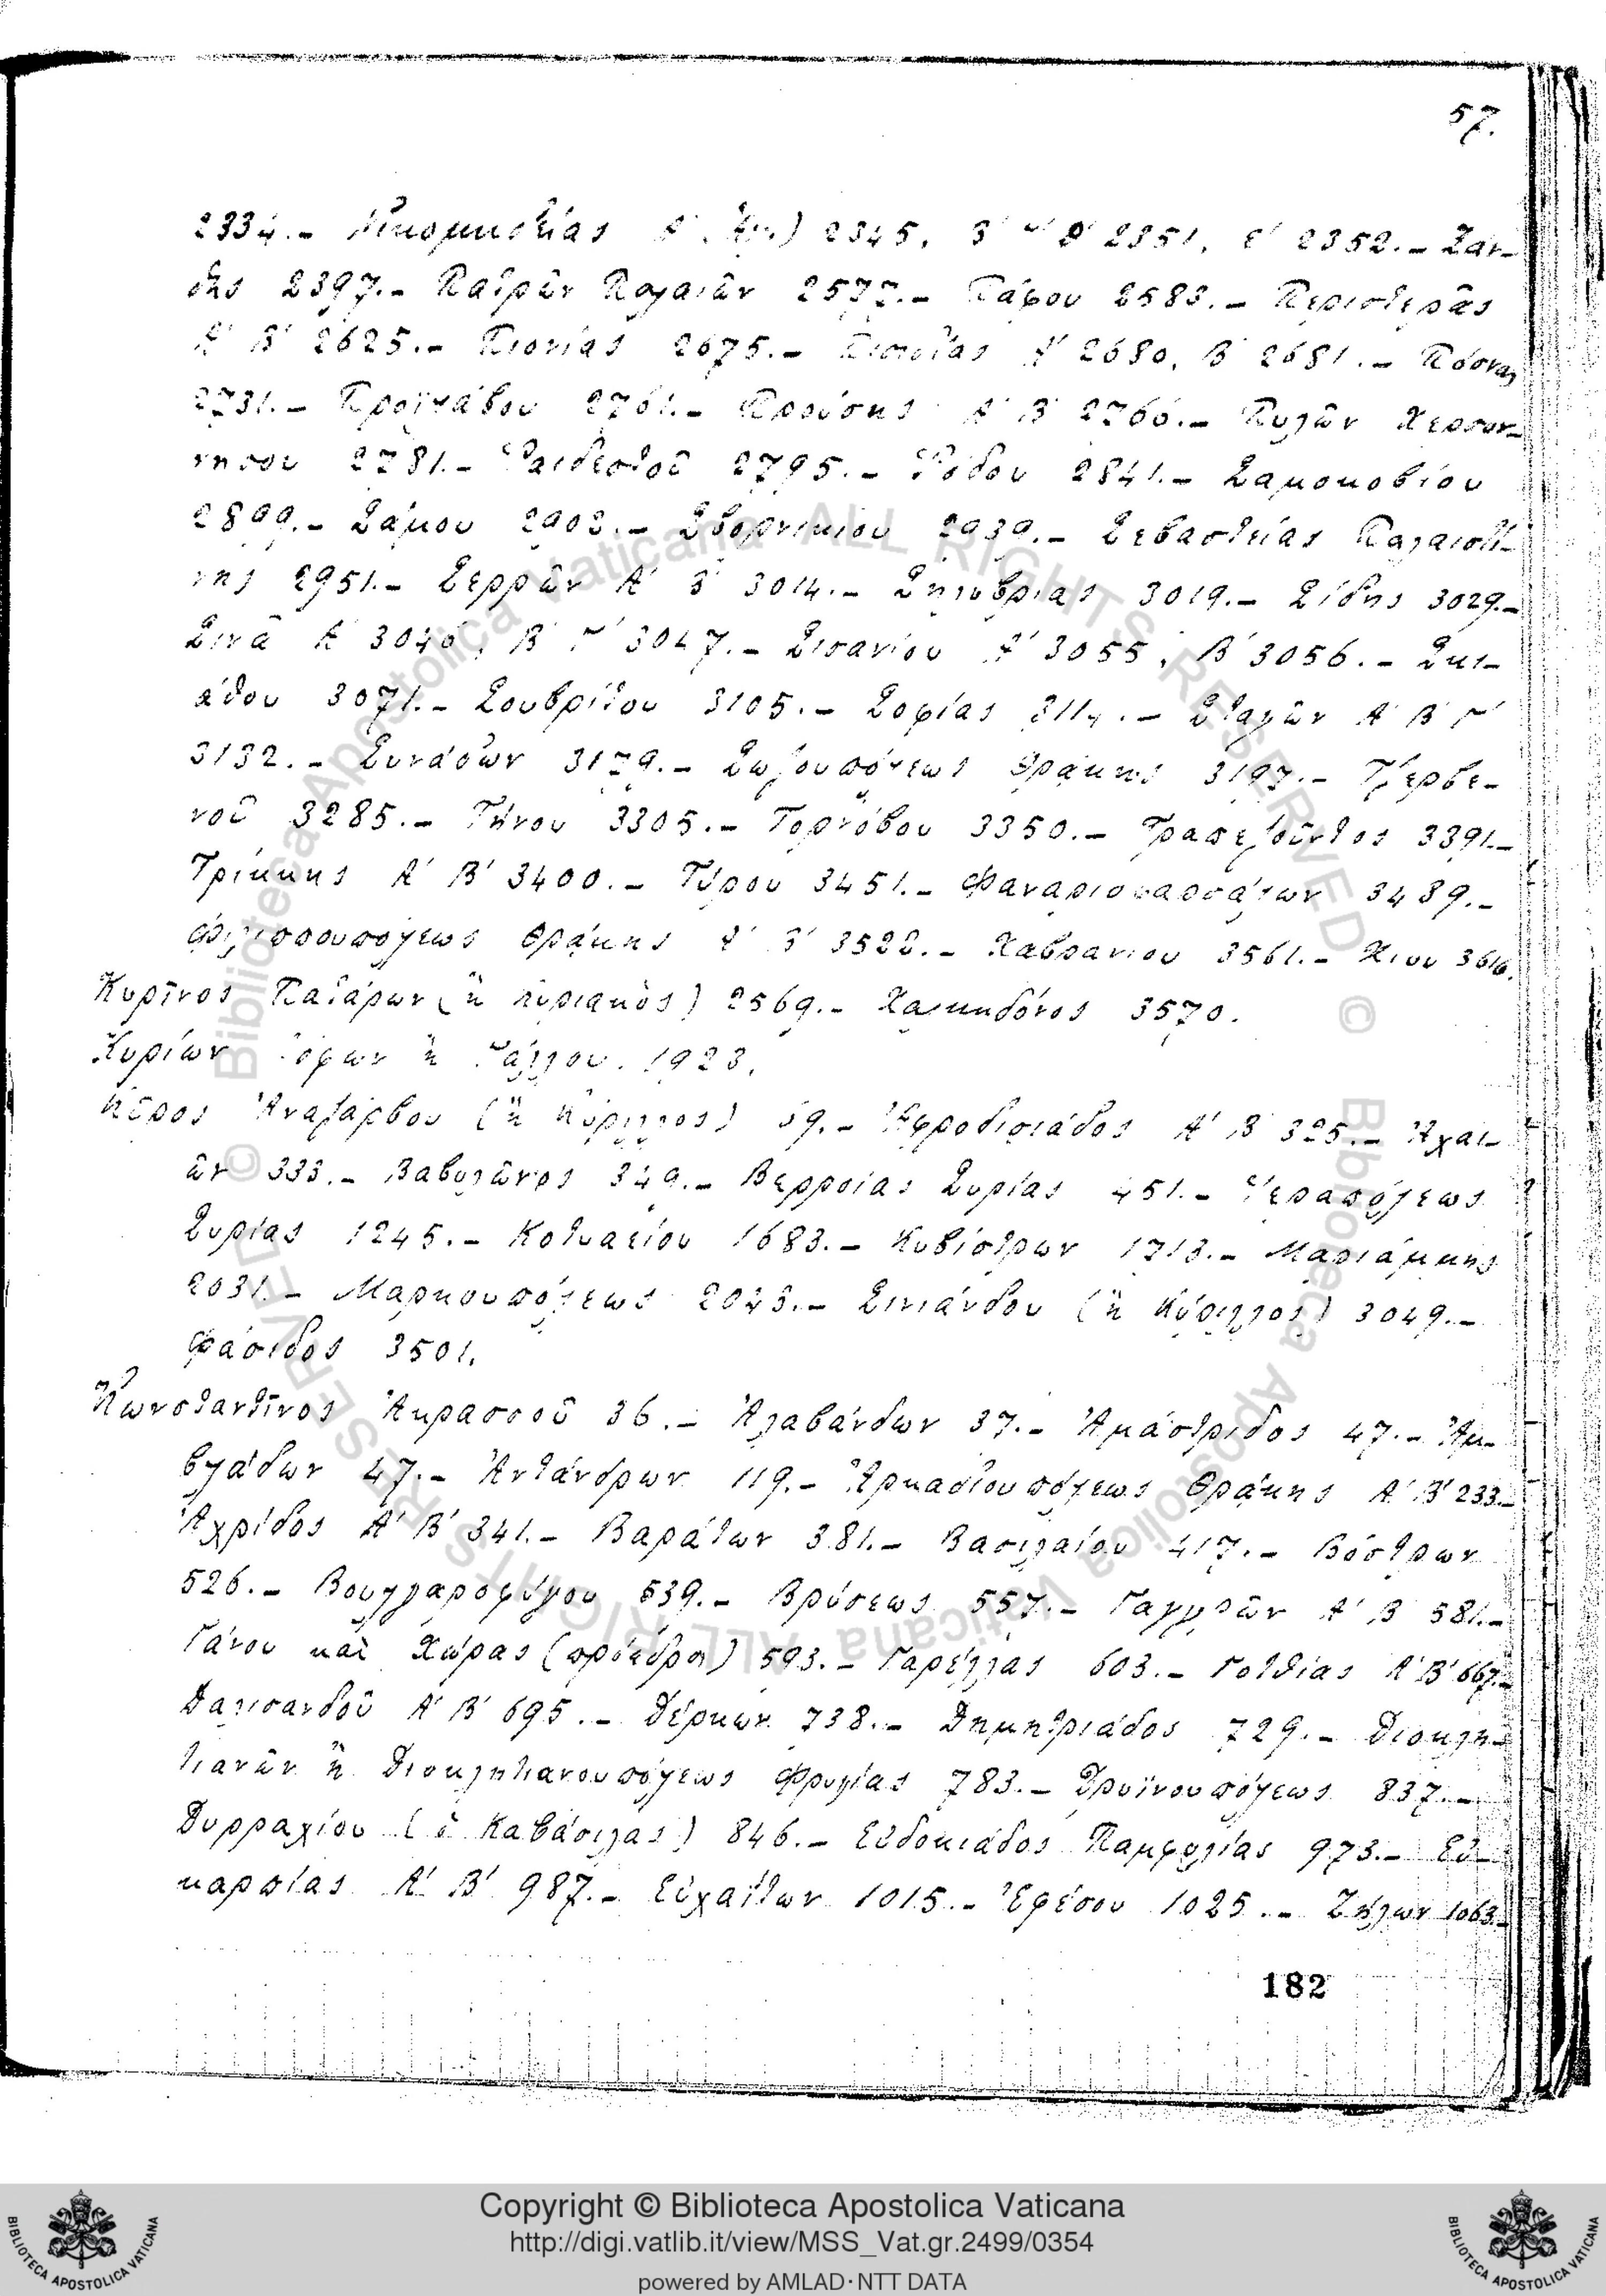 57.
2334.- Νικομηδείας Α΄ 2345, Β΄ Γ΄ Δ΄ 2351, Ε΄ 2352.- Ξάν-
θης 2397.- Πατρῶν Παλαιῶν 2577.- Πάφου 2583.- Περιστερᾶς
Α΄ Β΄ 2625.- Πιονίας 2675.- Πισιδίας Α΄ 2680, Β΄ 2681.- Πόσνας
2731.- Προϊλάβου 2761.- Προύσης Α΄ Β΄ 2766.- Πυλῶν Χερσον-
νήσου 2781.- Ῥαιδεστοῦ 2795.- Ῥόδου 2841.- Σαμοκοβίου
2899.- Σάμου 2902.- Σβορνικίου 2939.- Σεβαστείας Παλαιστί-
νης 2951.- Σερρῶν Α΄ Β΄ 3014.- Σηλυβρίας 3019.- Σίδης 3029.-
Σινᾶ Α΄ 3046, Β΄ Γ΄ 3047.- Σισανίου Α΄ 3055, Β΄ 3056.- Σκι-
άθου 3071.- Σουβρίτου 3105.- Σοφίας 3114.- Σταγῶν Α΄ Β΄ Γ΄
3132.- Συνάδων 3179.- Σωζουπόλεως Θρᾴκης 3197.- Τζερβε-
νοῦ 3285.- Τήνου 3305.- Τορνόβου 3350.- Τραπεζοῦντος 3391.-
Τρίκκης Α΄ Β΄ 3400.- Τύρου 3451.- Φαναριοφαρσάλων 3489.-
Φιλιππουπόλεως Θρᾴκης Α΄ Β΄ 3522.- Χαβρανίου 3561.- Χίου 3616.
Κυρῖνος Πατάρων (ἢ Κυριακὸς) 2569.- Χαλκηδόνος 3570.
Κυρίων ἢ 1923.
Κῦρος Ἀναζάρβου (ἢ Κύριλλος) 89.- Ἀφροδισιάδος Α΄ Β΄ 325.- Ἀχαι-
ῶν 333.- Βαβυλῶνος 349.- Βερροίας Συρίας 451.- Ἱεραπόλεως
Συρίας 1245.- Κοτυαείου 1683.- Κυβίστρων 1713.- Μαριάμμης
2031.- Μαρκουπόλεως 2043.- Σινιάνδου (ἢ Κύριλλος) 3049.-
Φάσιδος 3501.
Κωνσταντῖνος Ἀκρασσοῦ 36.- Ἀλαβάνδων 37.- Ἀμάστριδος 47.- Ἀμ-
βλάδων 47.- Ἀντάνδρων 119.- Ἀρκαδιουπόλεως Θρᾴκης Α΄ Β΄ 233.-
Ἀχρίδος Α΄ Β΄ 341.- Βαράτων 381.- Βασιλαίου 417.- Βόστρων
526.- Βουλγαροφύγου 539.- Βρύσεως 557.- Γαγγρῶν Α΄ Β΄ 581.-
Γάνου καὶ Χώρας (πρόεδρος) 593.- Γαρέλλας 603.- Γοτθίας Α΄ Β΄ 667.-
Δαλισανδοῦ Α΄ Β΄ 695.- Δέρκων 738.- Δημητριάδος 729.- Διοκλη-
τιανῶν ἢ Διοκλητιανουπόλεως Φρυγίας 783.- Δρυϊνουπόλεως 837.-
Δυρραχίου (ὁ Καβάσιλας) 846.- Εὐδοκιάδος Παμφυλίας 973.- Εὐ-
καρπίας Α΄ Β΄ 987.- Εὐχαΐτων 1015.- Ἐφέσου 1025.- Ζήλων 1063.-
182
Copyright © Biblioteca Apostolica Vaticana
http://digi.vatlib.it/view/MSS_Vat.gr.2499/0354
powered by AMLAD·NTT DATA